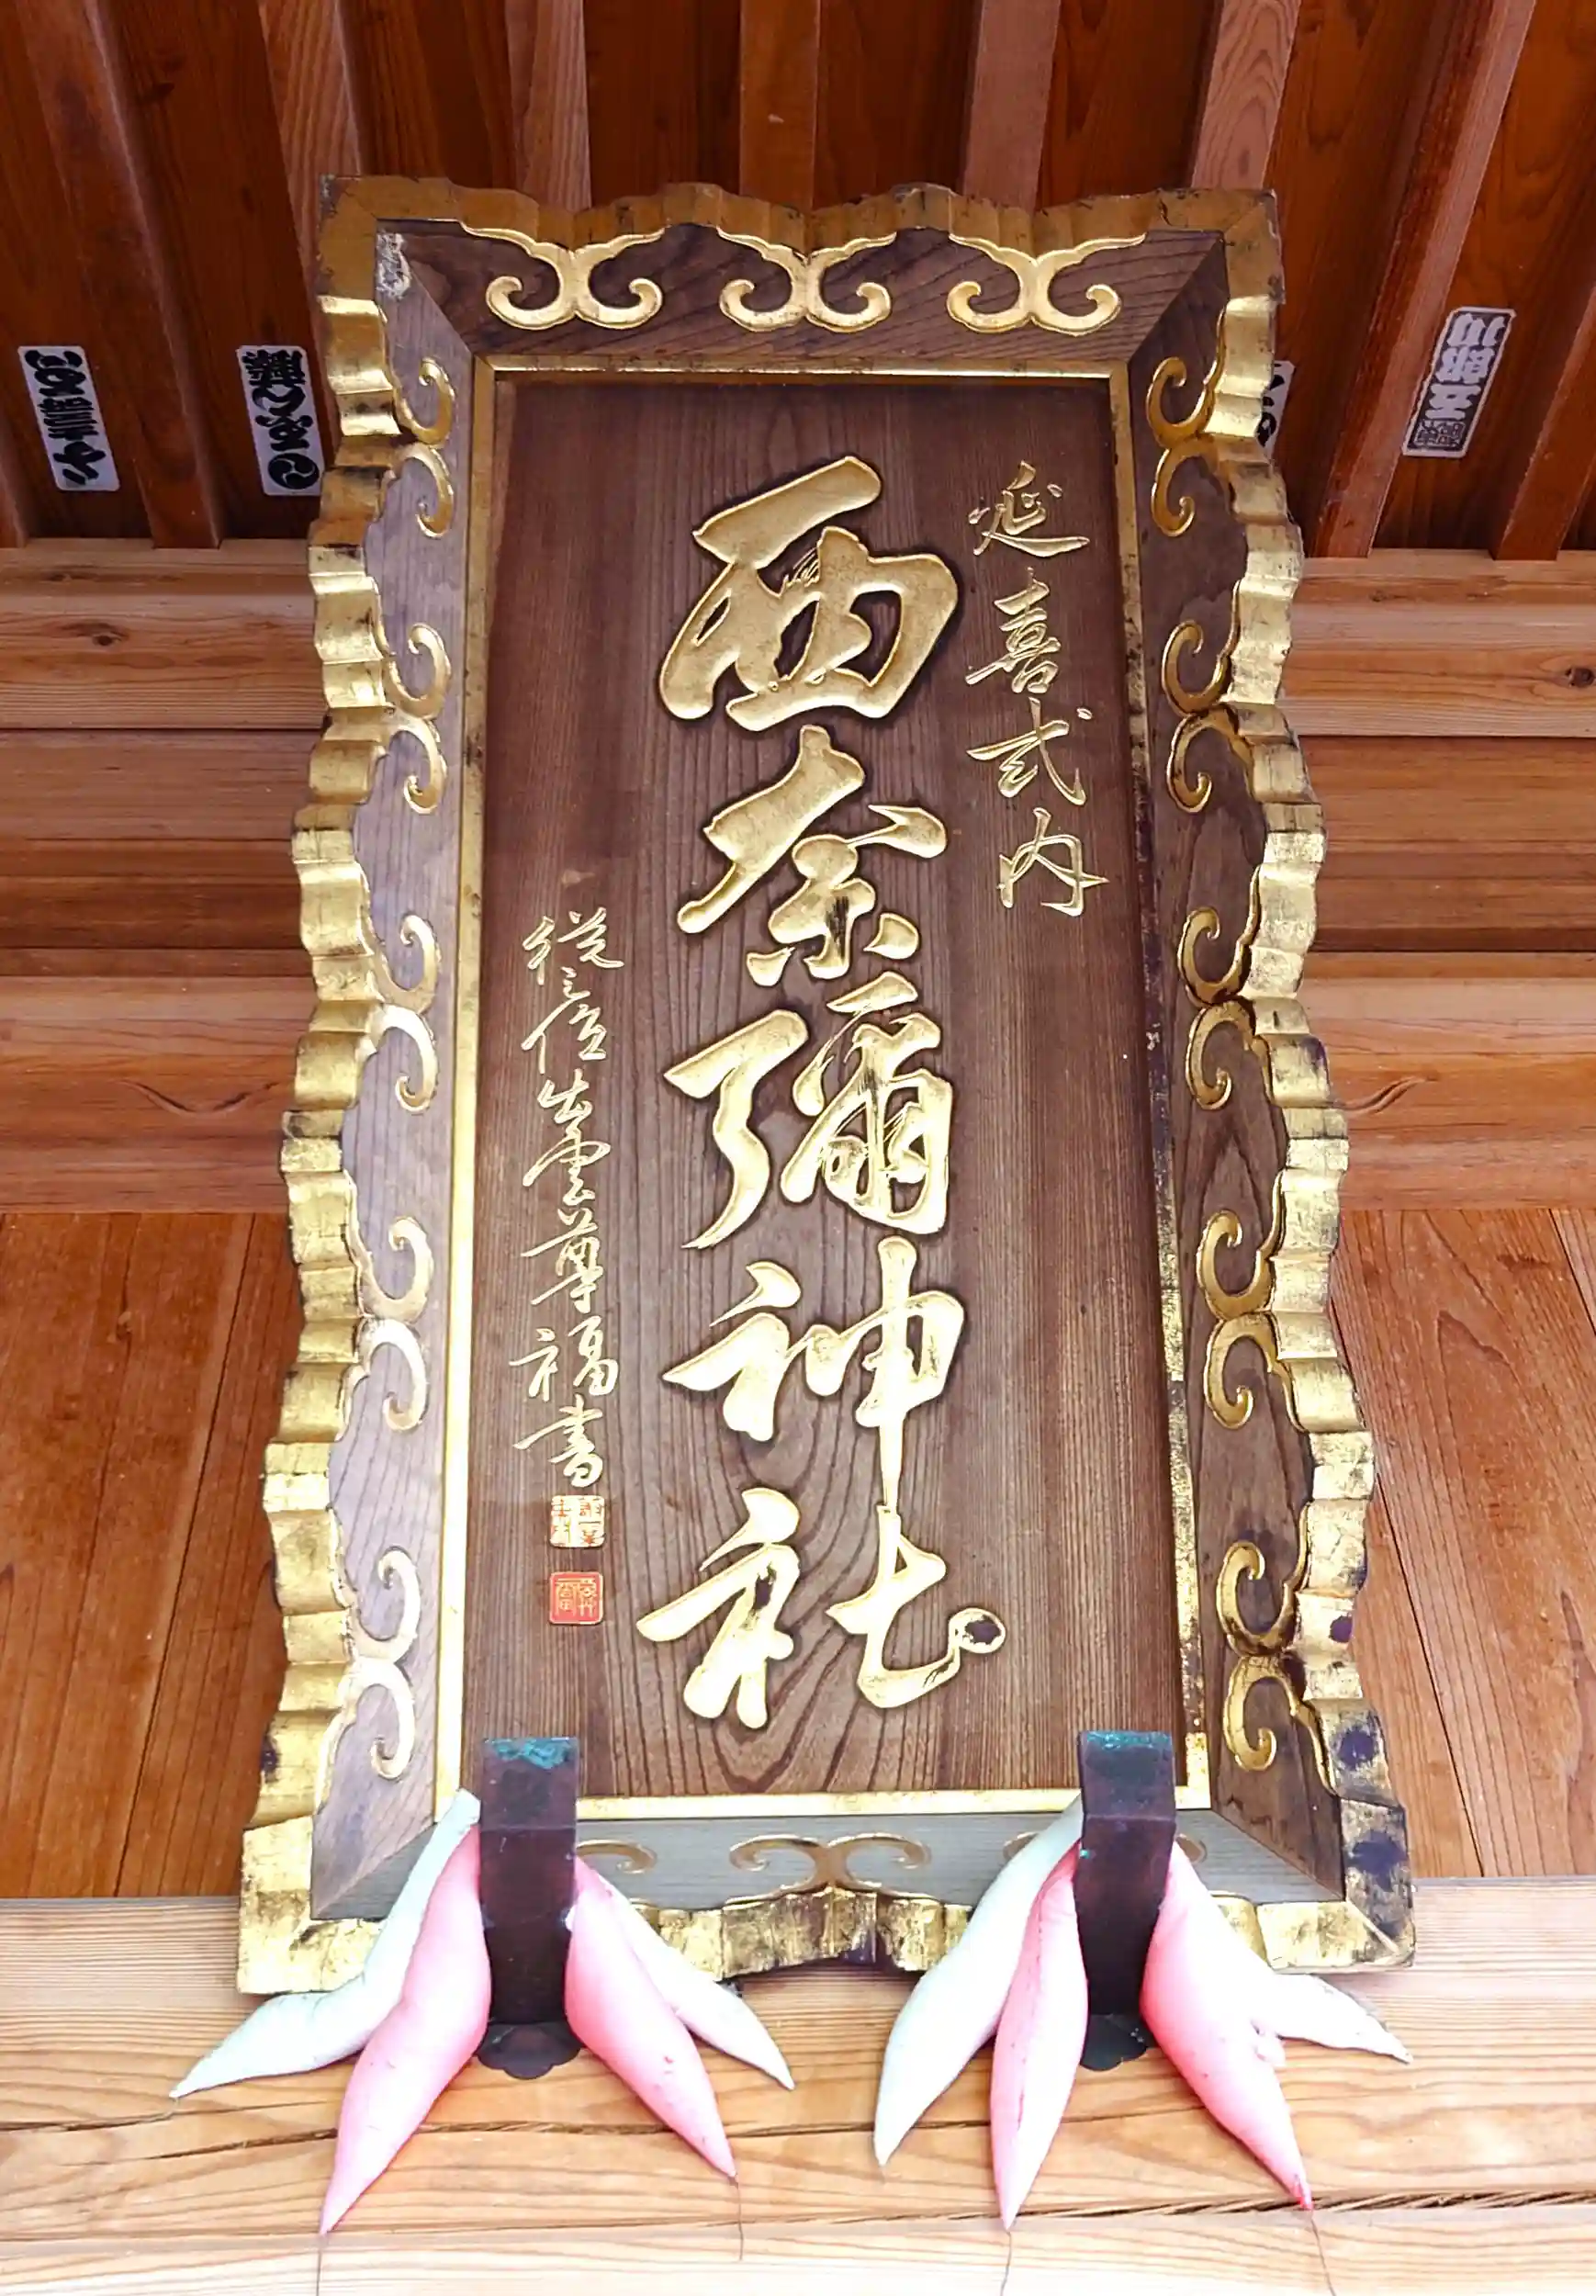 延喜式内
西奈彌神社
從二位出雲尊福書